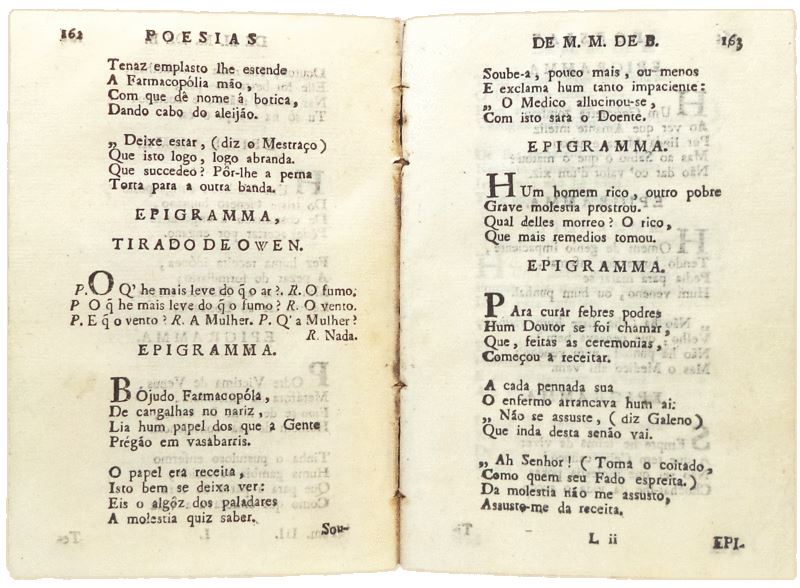 162 POESIAS
Tenaz emplasto lhe estende
A Farmacopólia mão,
Com que dê nome á botica,
Dando cabo do aleijão.
„ Deixe estar, ( diz o Mestraço)
Que isto logo, logo abranda.
Que succedeo? Pôr-lhe a perna
Torta para a outra banda.
EPIGRAMMA,
TIRADO DE OWEN.
P. O Q' he mais leve do q̃ o ar?. R. O fumo.
P O q̃ he mais leve do q̃ o fumo? R. O vento.
P. E q̃ o vento? R. A Mulher. P. Q' a Mulher?
R. Nada.
EPIGRAMMA.
BOjudo Farmacopóla,
De cangalhas no nariz,
Lia hum papel dos que a Gente
Prégão em vasabarris.
O papel era receita,
Isto bem se deixa ver:
Eis o algôz dos paladares
A molestia quiz saber.
Sou-
DE M. M. DE B. 163
Soube-a, pouco mais, ou menos
E exclama hum tanto impaciente:
„ O Medico allucinou-se,
Com isto sara o Doente.
EPIGRAMMA.
HUm homem rico, outro pobre
Grave molestia prostrou.
Qual delles morreo? O rico,
Que mais remedios tomou.
EPIGRAMMA.
PAra curar febres podres
Hum Doutor se foi chamar,
Que, feitas as ceremonias,
Começou a receitar.
A cada pennada sua
O enfermo arrancava hum ai:
„ Não se assuste, ( diz Galeno)
Que inda desta senão vai.
„ Ah Senhor! ( Torna o coitado,
Como quem seu Fado espreita.)
Da molestia não me assusto,
Assusto-me da receita.
L ii EPI-